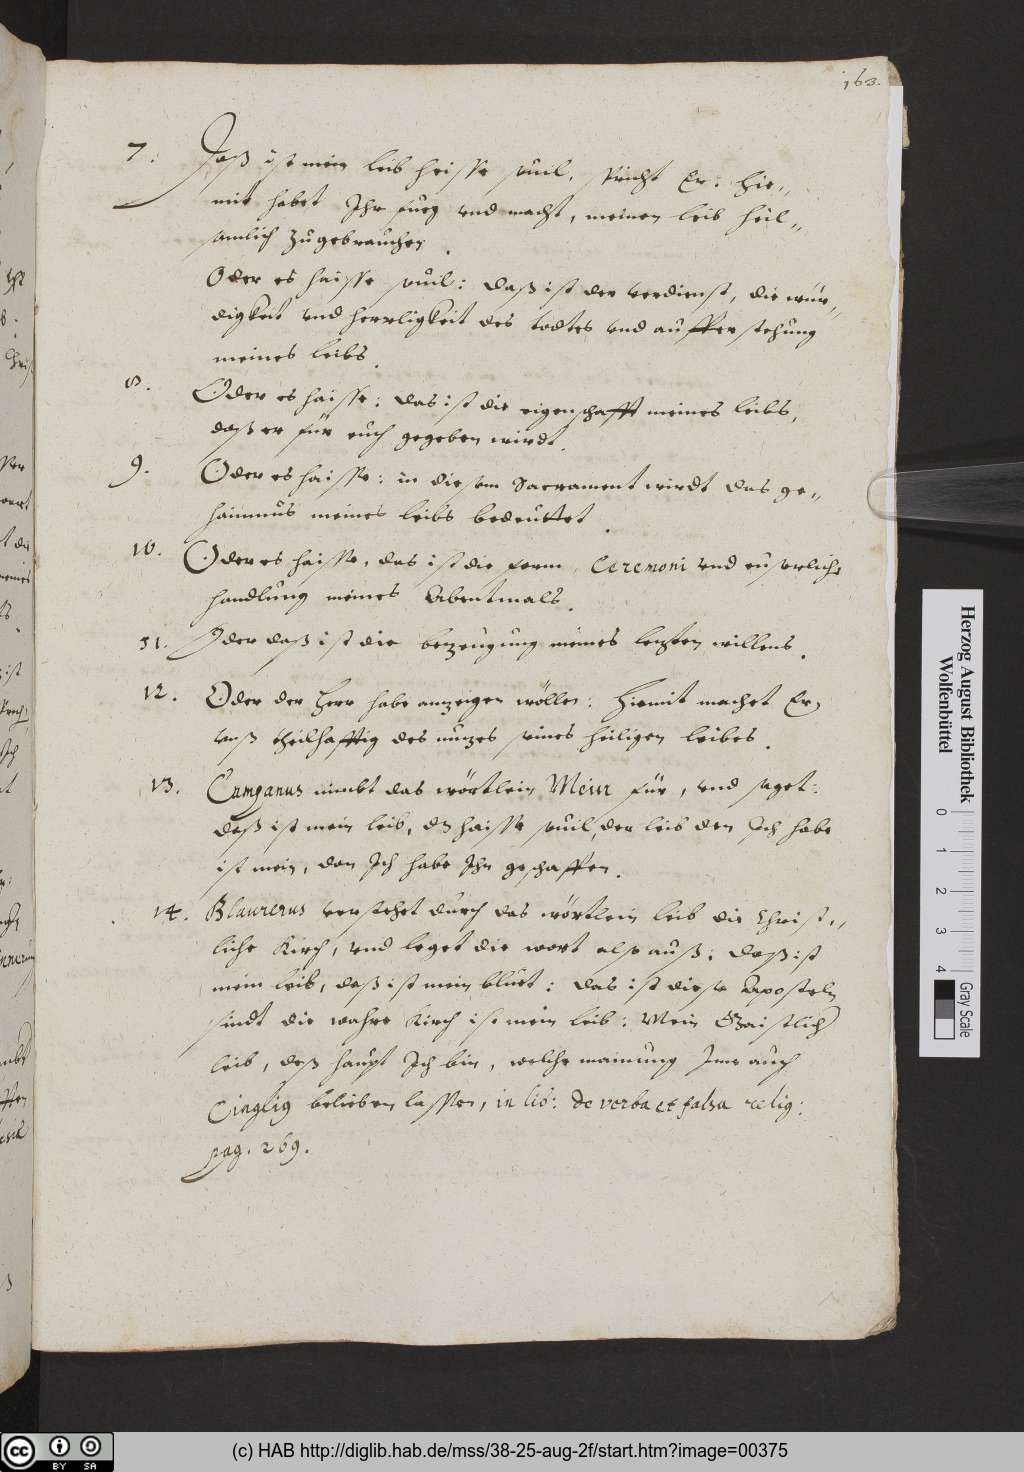 163.
7. Daß ist mein leib heisse souil, spricht Er: Hie„
mit habet Ihr fueg vnd macht, meinen leib heil„
samlich zugebrauchen.
Oder es haisse souil: daß ist der verdienst, die wür„
digkeit vnd herrligkeit des todtes vnd aufferstehung
meines leibs.
8. Oder es haisse: das ist die eigenschafft meines leibs,
daß er für euch gegeben wirdt.
9. Oder es haisse: in diesem Sacrament wirdt das ge„
haimnus meines leibs bedeuttet.
10. Oder es haisse, das ist die form, Ceremoni vnd euserliche
handlung meines Abentmals.
11. Oder daß ist die bezeugung meines lezten willens.
12. Oder der Herr habe anzeigen wöllen: hiemit machet Er
vnß theilhafftig des nuzes seines heiligen leibes.
13. Campanus nimbt das wörtlein Mein für, vnd saget:
daß ist mein leib, dz haisse souil, der leib den Ich habe
ist mein, dan Ich habe Ihn geschaffen.
14. Blaurerus verstehet durch das wörtlein leib die Christ„
liche Kirch, vnd leget die wort also auß: daß ist
mein leib, daß ist mein bluet: das ist diese Aposteln
sindt die wahre Kirch ist mein leib: Mein Gaistlich
leib, deß haupt Ich bin, welche mainung Ime auch
Cinglig belieben lassen, in lib: de verba et falsa relig:
pag. 269.
Herzog August Bibliothek
Wolfenbüttel
0 1 2 3 4
Gray Scale
cc BY SA
(c) HAB http://diglib.hab.de/mss/38-25-aug-2f/start.htm?image=00375